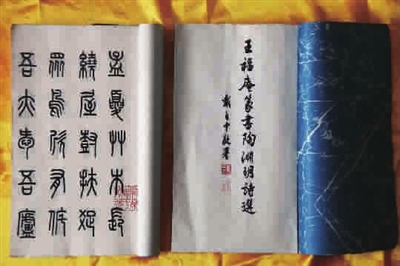 王福庵篆書陶淵明詩選
戴自中敬署
孟夏艸木長
繞屋尌扶疏
眾鳥欣有託
吾亦愛吾廬